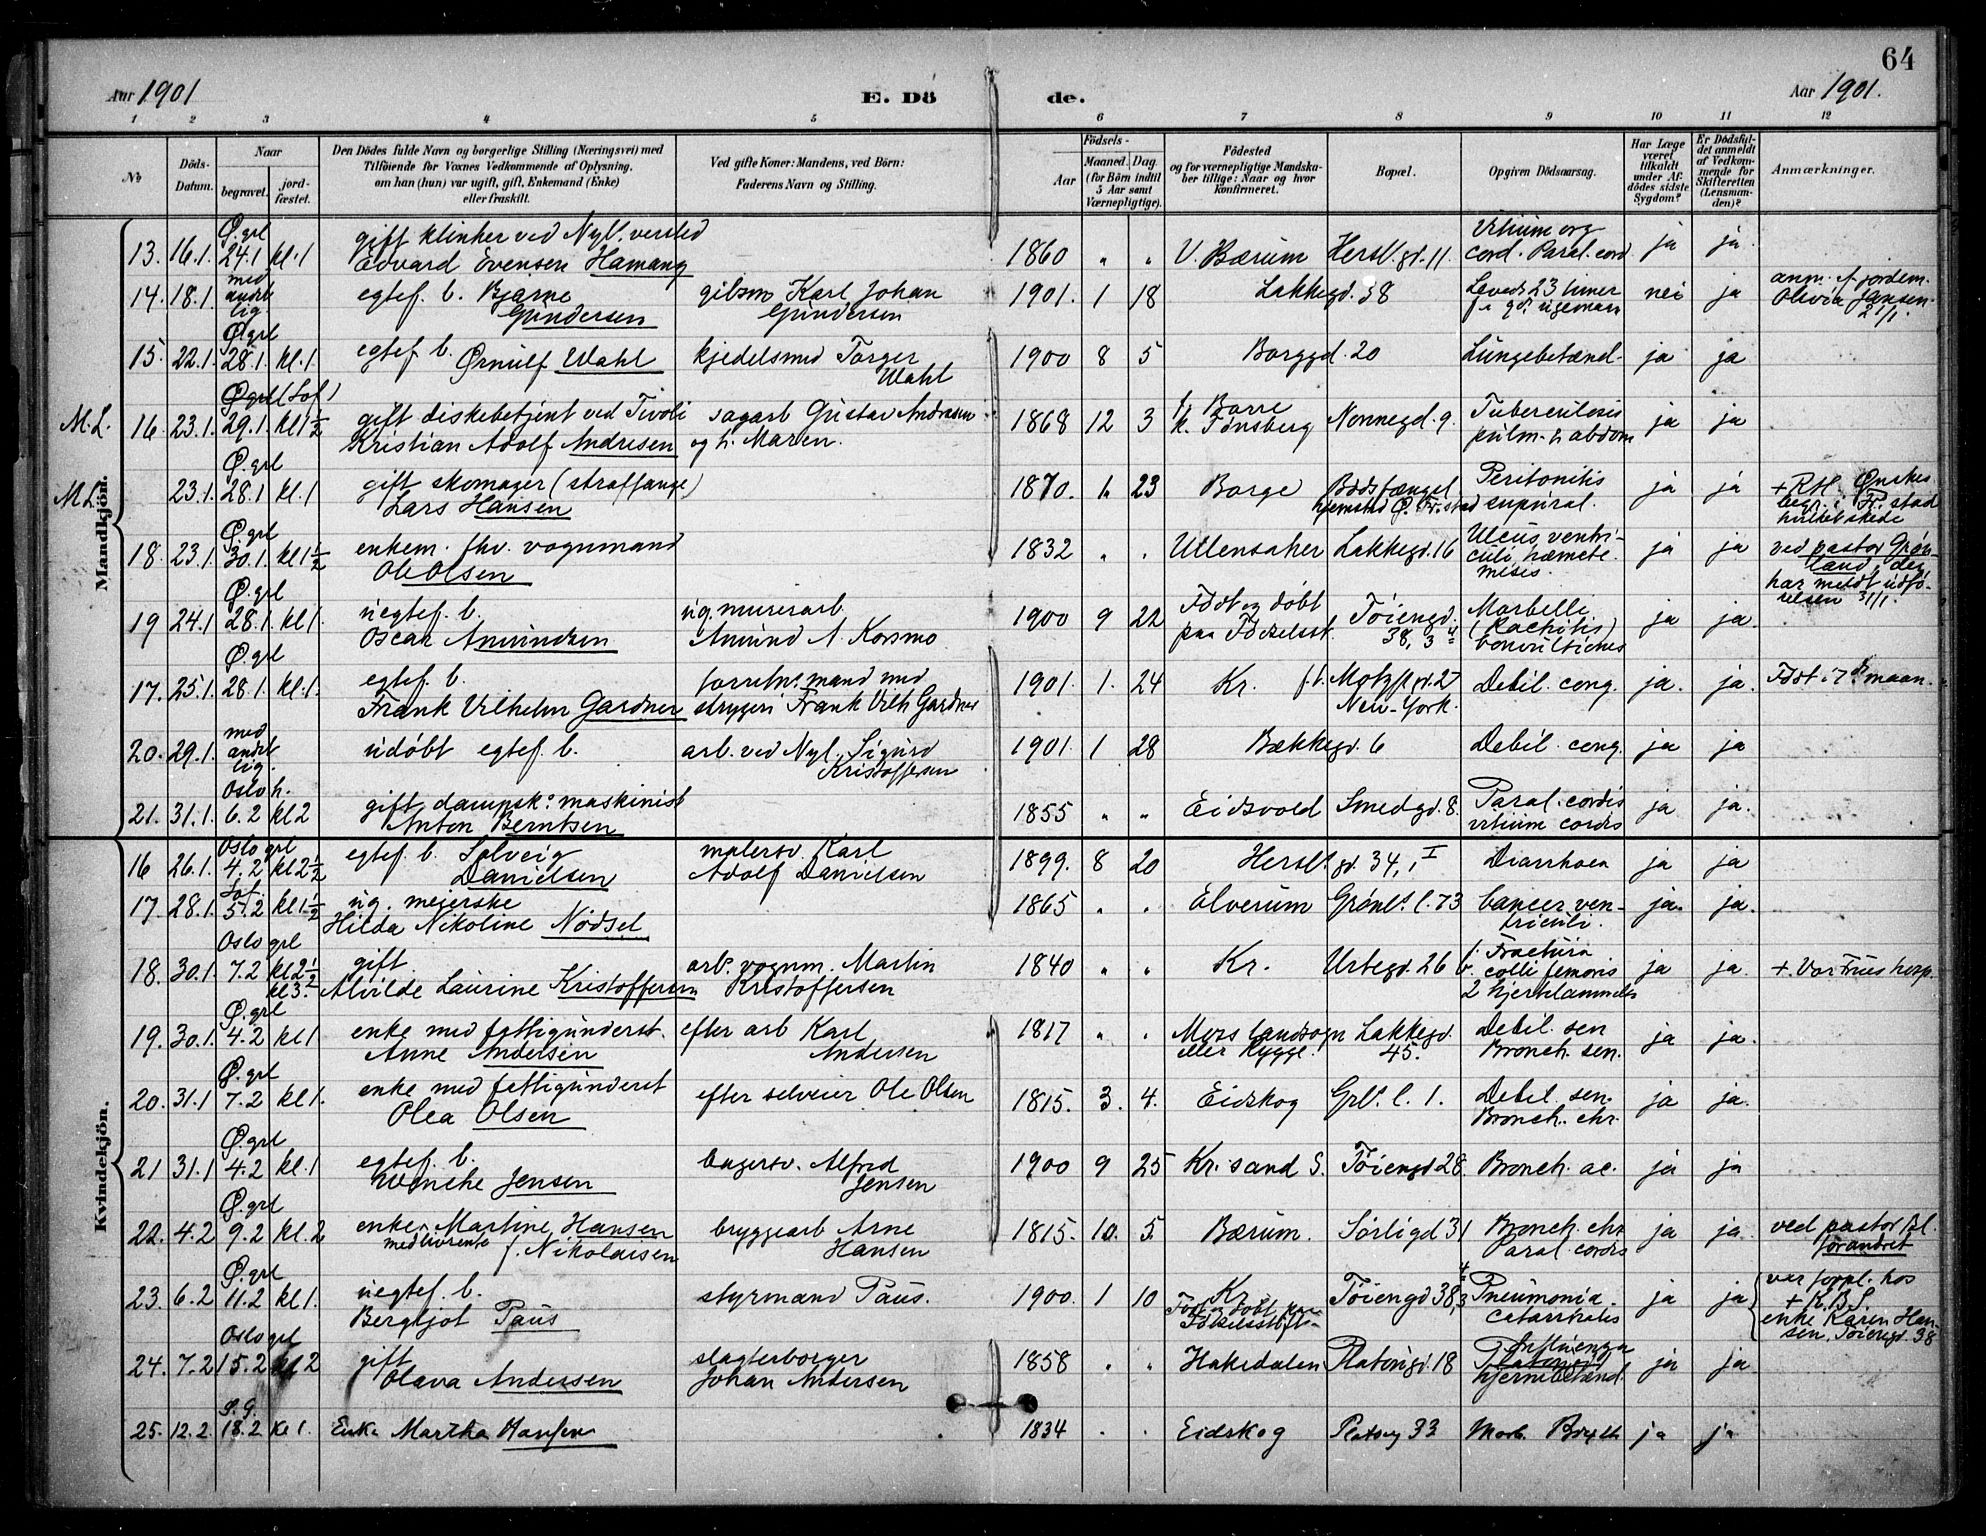 64
Aar 1901
E. Dö de.
Aar 1901.
1 2 3 4 5 6 7 8 9 10 11 12
№
Döds-Datum.
Naar
begravet.
jord-fæstet.
Den Dödes fulde Navn og borgerlige Stilling (Næringsvei) med
Tilföiende for Voxnes Vedkommende af Oplysning,
om han (hun) var ugift, gift, Enkemand (Enke)
eller fraskilt.
Ved gifte Koner: Mandens, ved Börn:
Faderens Navn og Stilling.
Födsels-
Aar
Maaned. Dag.
(for Börn indtil
5 Aar samt
Værnepligtige).
Födested
og for værnepligtige Mandska-
ber tillige: Naar og hvor
Konfirmeret.
Bopæl.
Opgiven Dödsaarsag.
Har Læge
været
tilkaldt
under Af-
dödes sidste
Sygdom?
Er Dödsful-
det anmeldt
af Vedkom-
mende for
Skifteretten
(Lensman-
den)?
Anmærkninger.
Mandkjön.
13. 16.1. Ø. grl 24.1 kl. 1 gift klinker ved Nyl. versted
Edvard Evensen Hamang 1860 " " V. Bærum Hersl. gd. 11 Vitium org
cord. Paral. cord ja ja.
14. 18.1. med andet lig. egtef. b. Bjarne
Gundersen gibsm Karl Johan
Gundersen 1901. 1 18 Lakkegd. 38 Levede 23 timer nei ja anm. af jordem.
Olivia Jansen 21/1.
15. 22.1. Ø. grl 28.1. kl. 1 egtef. b. Ørnulf Wahl kjedelsmed Torger
Wahl 1900 8 5 Borggd. 20 Lungebetænd. ja ja
M.L. 16. 23.1. Ø grl (Sof.) 29.1. kl 1½ gift diskebetjent ved Tivoli
Kristian Adolf Andresen sagarb Gustav Andresen
og h. Maren. 1868 12 3 f. Borre
k. Tønsberg Nonnegd. 9. Tuberculosis
pulm. & abdom ja ja
M.L. 23.1. Ø. grl 28.1 kl. 1 gift skomager (straffange)
Lars Hansen 1870. 1. 23 Borge Bodsfængsel
hjemsted Ø. Fr. stad Peritonitis
supural. ja ja + RH Ønskes
begr. i Fr. stad
hvilket skede
18. 23.1. Ø. grl 30.1. kl 1½ enkem. fhv. vognmand
Ole Olsen 1832 " " Ullensaker Lakkegd. 16 Ulcus ventri-
culi, hæmate-
mesis. ja ja ved pastor Grøn-
land, der
har meldt udfø-
relsen 31/1.
19 24.1 Ø. grl 28.1. kl 1. uegtef. b.
Oscar Amundsen ug. murerarb.
Amund A. Korsmo 1900 9 22 Født og døbt
paa Fødselsst. Tøiengd.
38, 3 4 Morbelli
(Rachitis)
Convultiones ja ja.
17. 25.1. Ø. grl 28.1 kl. 1. egtef. b.
Frank Vilhelm Gardner forretn. mand med
strygeri Frank Vilh Gardner 1901. 1. 24 Kr. f. t. Motzfgd. 27
New-York. Debil. cong. ja. ja. Født i 7de maan.
20. 29.1. med andet lig. udøbt egtef. b. arb. ved Nyl. Sigurd
Kristoffersen 1901. 1 28 Bækkegd. 6 Debil. cong. ja ja
21. 31.1. Oslo h. 6.2 kl 2 gift dampsk. maskinist
Anton Berntsen 1855 " " Eidsvold Smedgd. 8. Paral. cordis
vitium cordis ja ja.
Kvindekjön.
16 26.1. Oslo grl 4.2 kl 2½ egtef. b. Solveig
Danielsen malersv. Karl
Adolf Danielsen 1899. 8 20 Hersl. gd. 34, I Diarrhoea ja ja
17. 28.1. Sof. 5.2 kl. 1½ ug. meierske
Hilda Nikoline Nødsel 1865 " " Elverum Grønl. l. 73 Cancer ven-
triculi. ja. ja.
18. 30.1. Oslo grl 7.2 kl 2½
kl 3. gift
Alvilde Laurine Kristoffersen arb. vognm. Martin
Kristoffersen 1840 " " Kr. Urtegd. 26 b. 1. Fractura
colli femoris
2 hjertelammelse ja ja. + Vor Frues hosp.
19. 30.1. Ø. grl 4.2 kl 1 enke med fattigunderst.
Anne Andersen efter arb Karl
Andersen 1817 " " Moss landsogn
eller Rygge. Lakkegd.
45. Debil. sen
Bronch. sen. ja ja.
20. 31.1 Ø. grl 7.2 kl 1. enke med fattigunderst
Olea Olsen efter selveier Ole Olsen 1815. 3. 4. Eidskog Grl. l. 1. Debil. sen.
Bronch. chr. ja ja.
21 31.1 Ø. grl 4.2 kl. 1 egtef. b.
Wenche Jensen bagersv. Alfred
Jensen 1900 9 25 Kr. sand S. Tøiengd 28. Bronch. ac. ja ja
22. 4.2 Ø. grl 9.2 kl. 2 enke Martine Hansen
med livrente f. Nikolaisen bryggearb Arne
Hansen 1815. 10. 5. Bærum. Sørligd 31 Bronch. chr
Paral. cordis ja ja. ved pastor Bl.
forandret
23. 6.2 Ø. grl 11.2 kl 1. uegtef. b.
Bergljot Paus styrmand Paus. 1900. 1 10 Kr.
Født og døbt paa
Fødselsstift. Tøiengd 38, 3 4 Pneumonia
catarrhalis ja ja var forpl. hos
+ K.B.S.
enke Karen Han-
sen, Tøiengd. 38
24. 7.2 Oslo grl 15.2 kl 2 gift
Olava Andersen slagterborger
Johan Andersen 1858 " " Hakedalen Platougd. 18 Influenza
hjernebetænd. ja ja.
25. 12.2. Ø. G. 18.2 Kl 1. Enke Martha Hansen 1834 . . Eidskog Platoug 33 Morb. Brigth ja ja